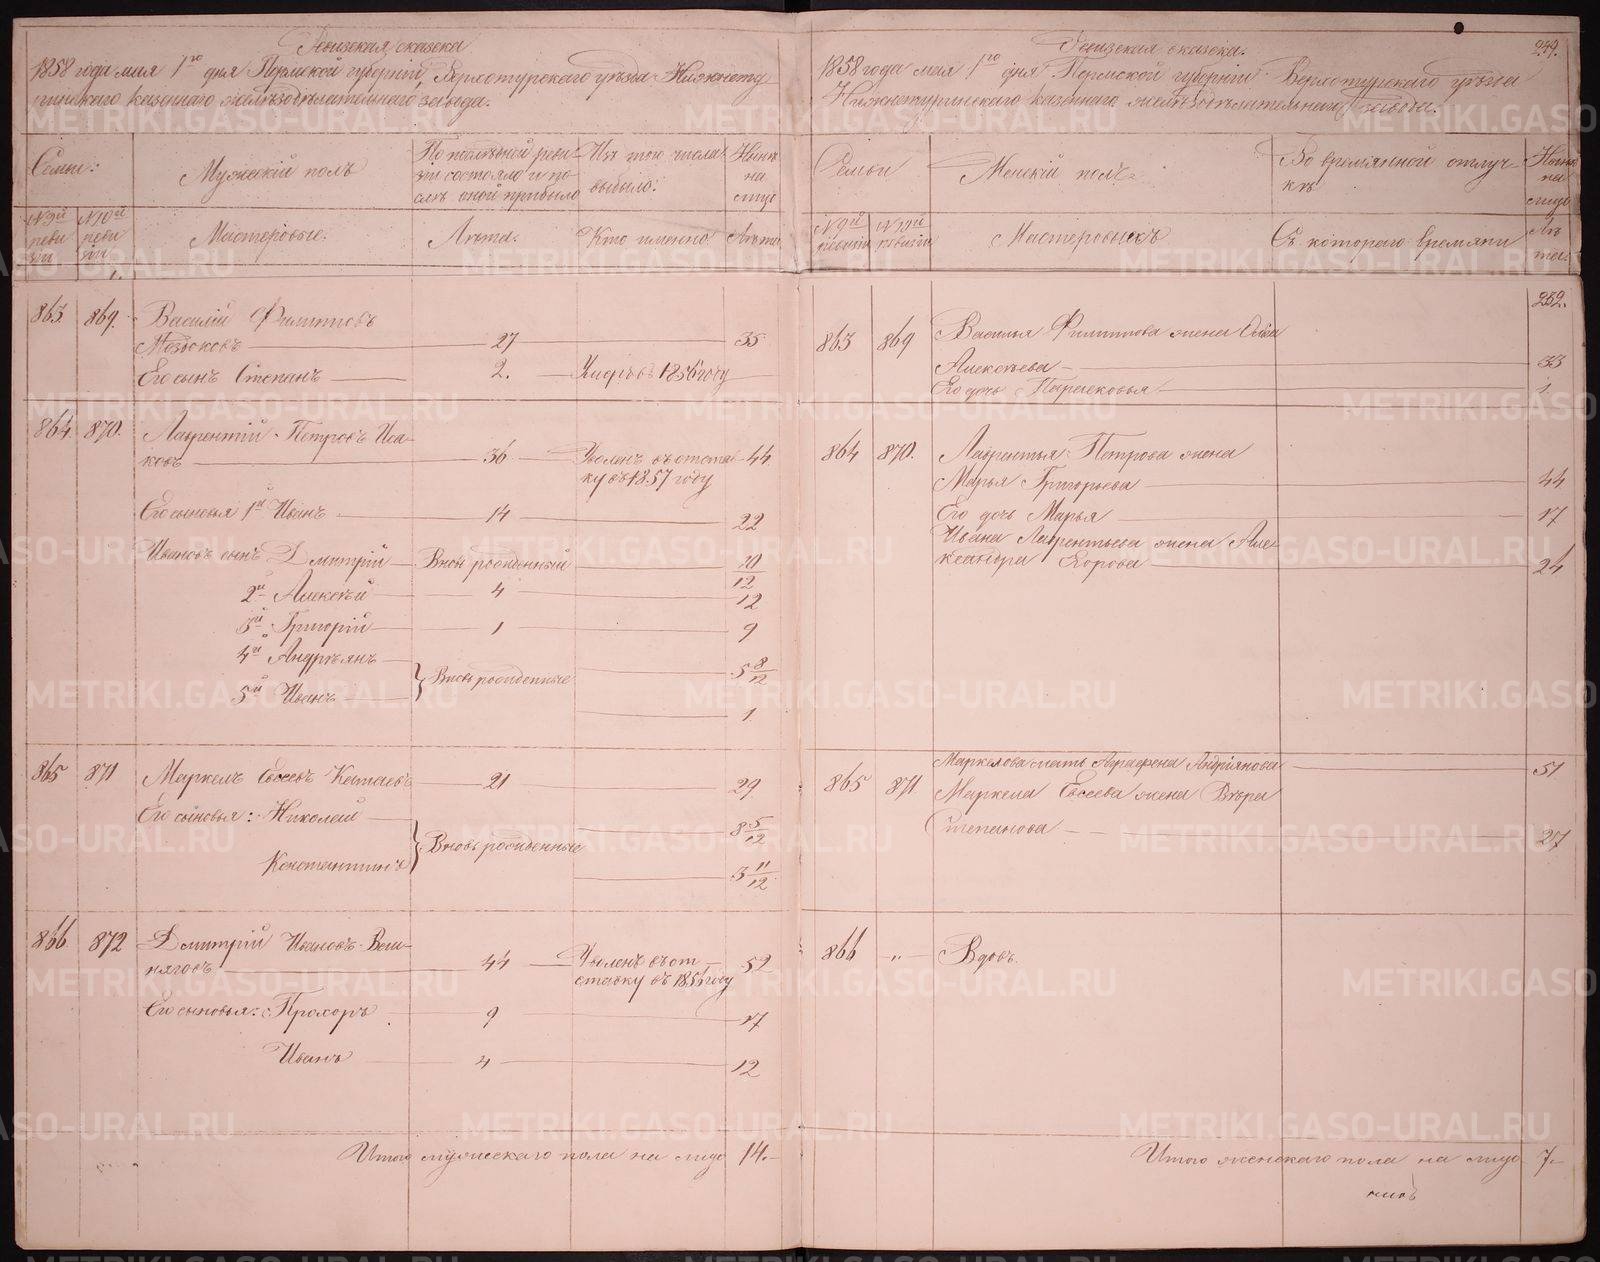 Ревизская сказка
1858 года мая 1го дня Пермской губернии, Верхотурского уезда Нижнету
ринского казенного железоделательнаго завода.
Семьи:
Мужеский полъ
По последней реви-
зіи состояло и по-
слѣ оной прибыло
Изъ того числа
выбыло:
Нынѣ
на
лицо
№ 9й
реви
зіи
№ 10й
реви
зіи
Мастеровые.
Лѣта.
Кто именно
Лѣта
863. 869. Василій Филиповъ
27 35
Его сынъ Степанъ 2. Умеръ въ 1856 году
864. 870. Лаврентій Петровъ Иса-
ковъ 36 Уволенъ въ отста- 44
ку въ 1857 году
Его сыновья 1й Иванъ 14 22
Ивановъ сынъ Дмитрій Вновь рожденный 10/12
2й Алексѣй 4 12
3й Григорій 1 9
4й Андреянъ
Вновь рожденные 5 8/12
5й Иванъ
1
865 871 Маркелъ Евсеевъ Катаевъ 21 29
Его сыновья: Николай 8 5/12
Вновь рожденные
Константинъ 3 11/12
866. 872 Дмитрій Ивановъ
44 Уволенъ въ от- 52
ставку въ 1856 году
Его сыновья: Прохоръ 9 17
Иванъ 4 12
Итого мужескаго пола на лицо 14.
249.
Ревизская сказка.
1858 года мая 1го дня Пермской губерніи Верхотурскаго уезда
Нижнетуринскаго казеннаго железоделательнаго завода.
Семьи
Женскій полъ
Во времянной отлуч-
кѣ
Нынѣ
на
лицо
№ 9й
ревизіи
№ 10й
ревизіи
Мастеровыхъ
Съ котораго времяни
Лѣ
та.
252.
863 869 Василья Филипова жена
Алексѣева 33
Его дочь Парасковья 1
864 870. Лаврентья Петрова жена
Марья Григорьева 44
Его дочь Марья 17
Ивана Лаврентьева жена Але-
ксандра Егорова 24
Маркелова мать Аграфена Андріянова 51
865 871 Маркела Евсеева жена Вѣра
Степанова 27
866 „ Вдовъ.
Итого женскаго пола на лицо 7.
METRIKI.GASO-URAL.RU